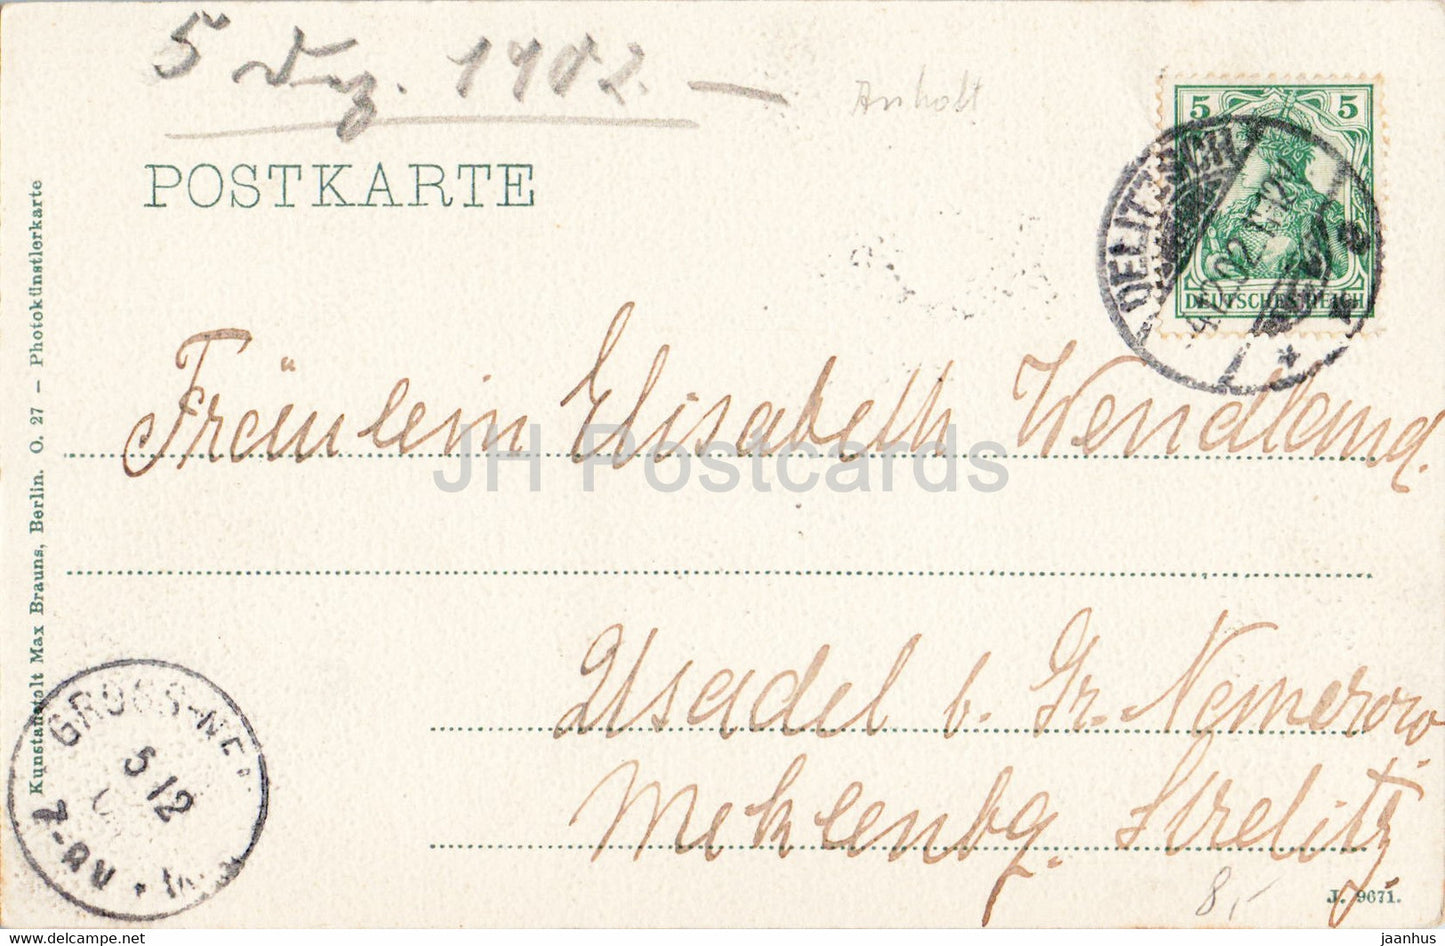 5 Dez. 1902. —
Anholt
POSTKARTE
5 5
DEUTSCHES REICH
DELITZSCH
Fräulein Elisabeth Wendland.
JH Postcards
Usadel b. Gr. Nemerow
Meklenbg. Strelitz
GROSS-NE
5 12
Kunstanstalt Max Brauns, Berlin. O. 27 — Photokünstlerkarte
8,-
J. 9671.
www.delcampe.net
jaanhus